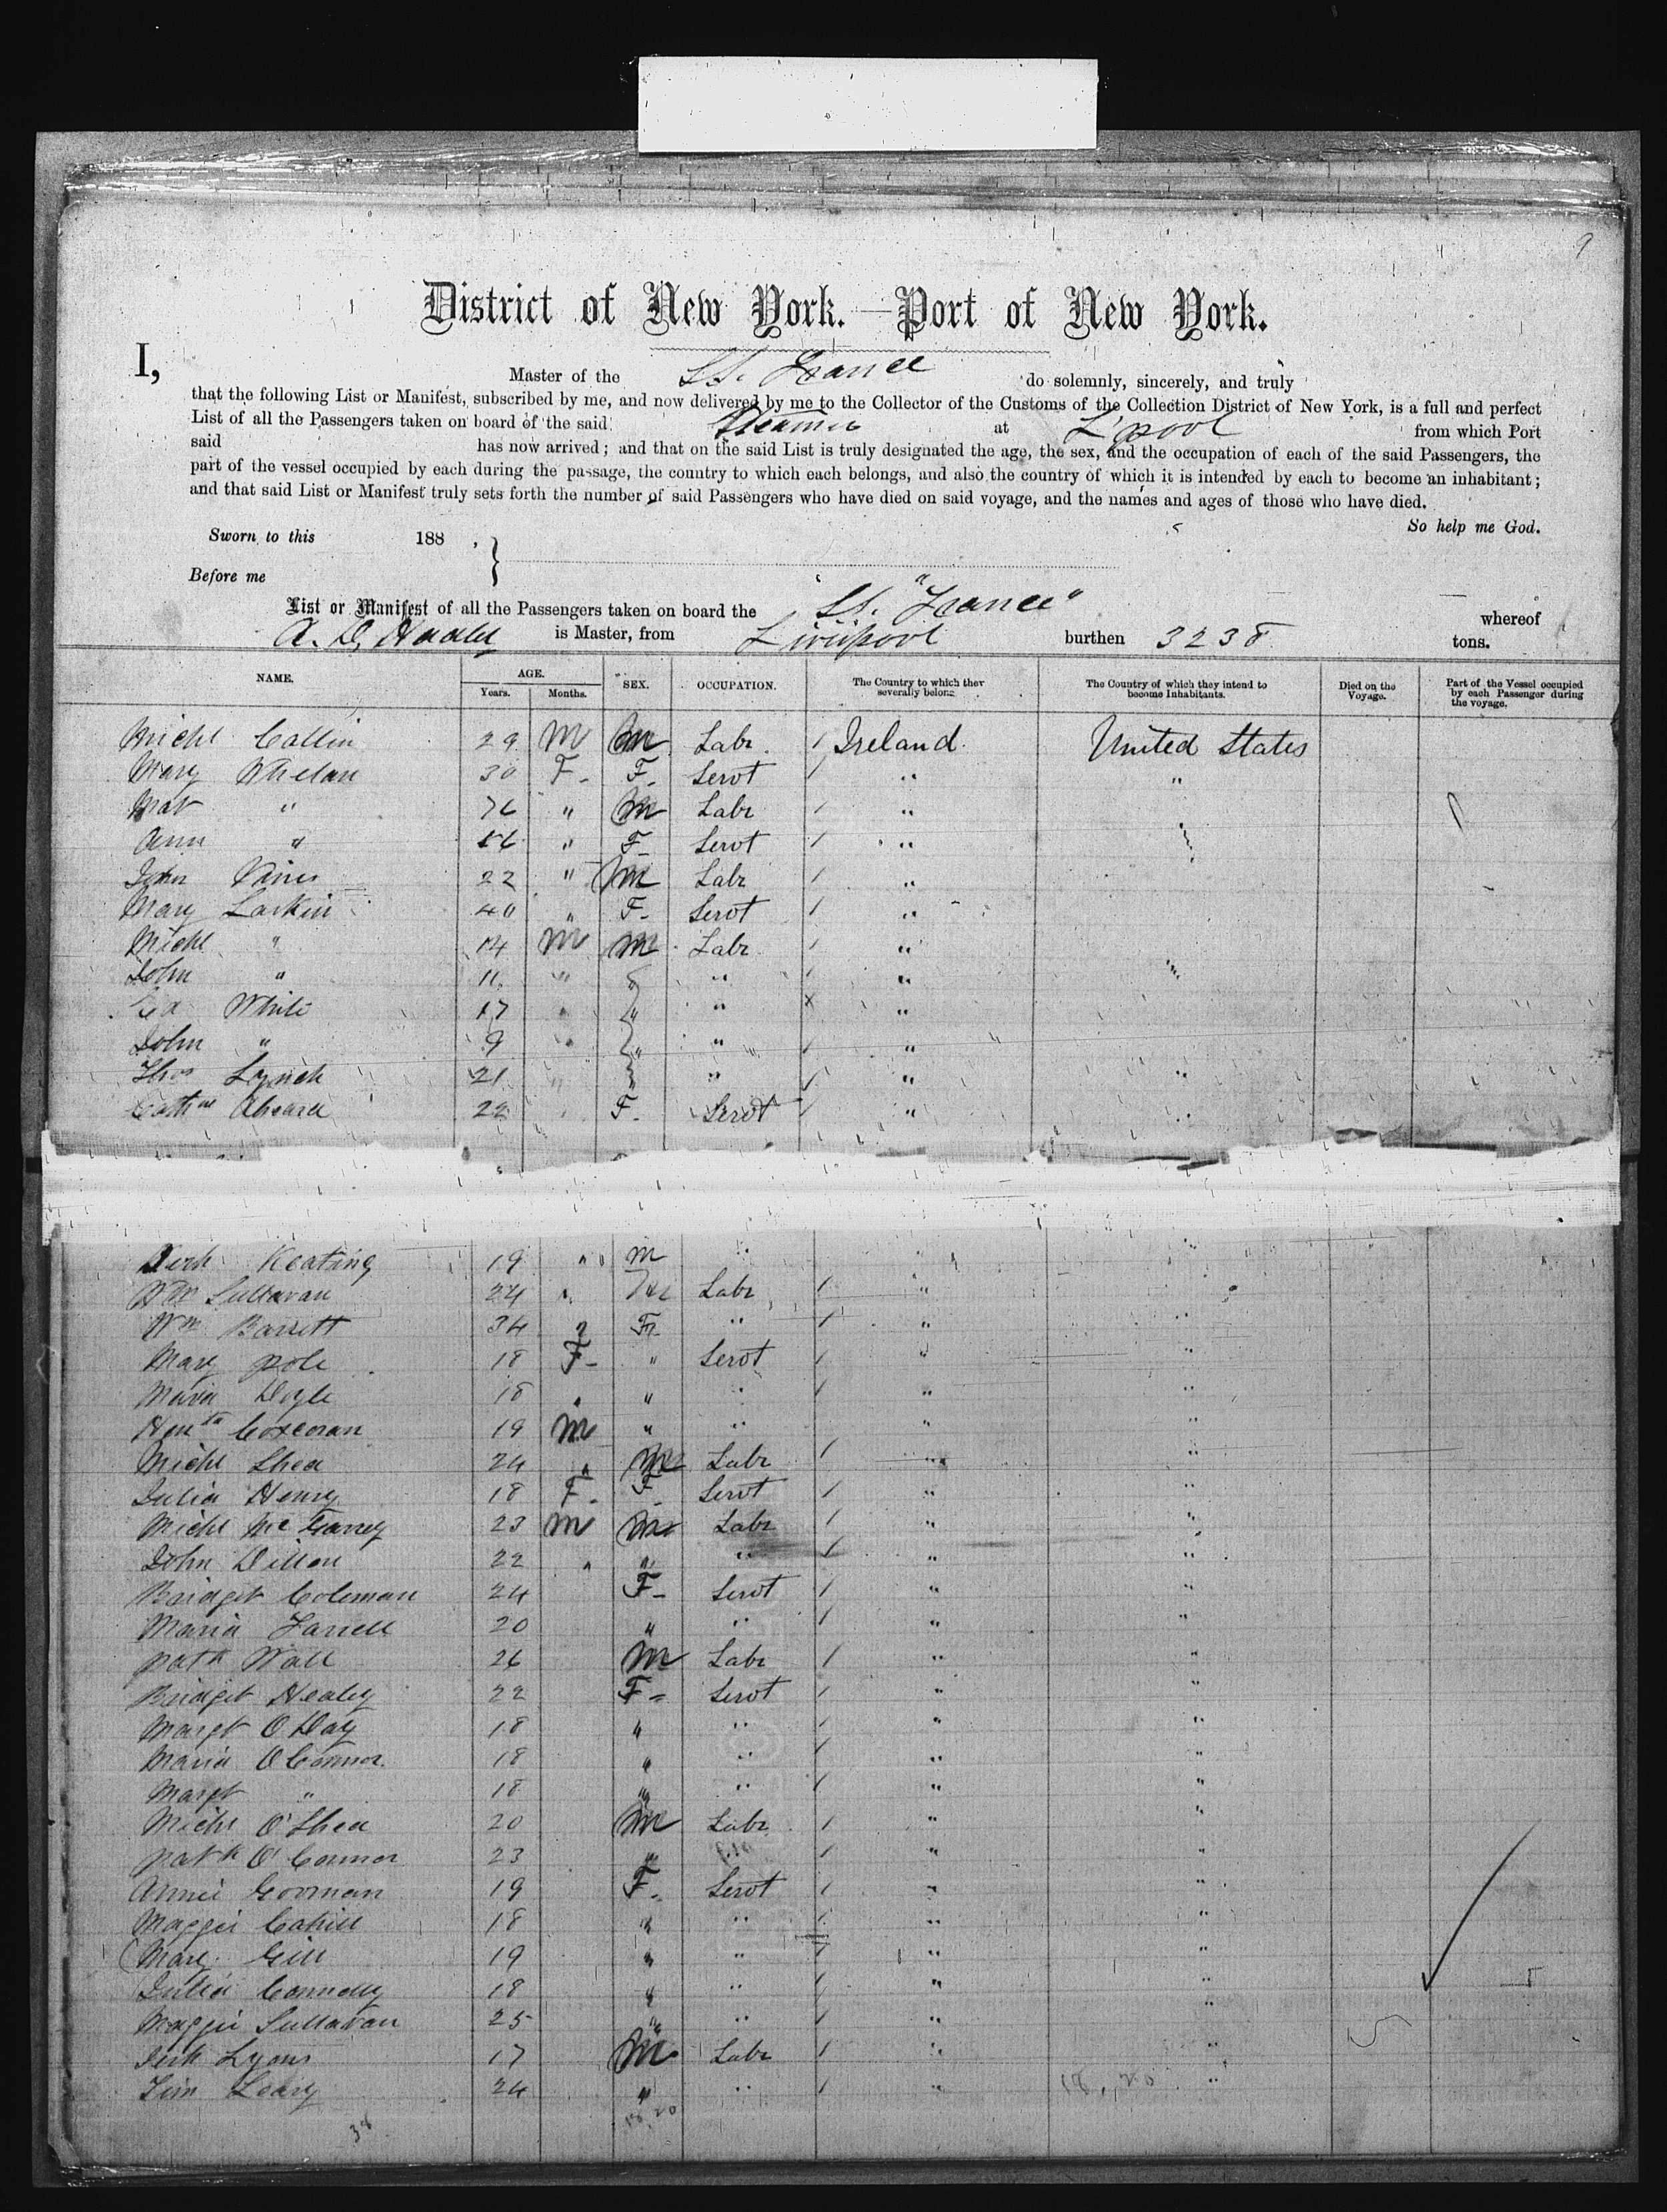 9
District of New York.—Port of New York.
I,
Master of the SS. France do solemnly, sincerely, and truly
that the following List or Manifest, subscribed by me, and now delivered by me to the Collector of the Customs of the Collection District of New York, is a full and perfect
List of all the Passengers taken on board of the said Steamer at L'pool from which Port
said has now arrived; and that on the said List is truly designated the age, the sex, and the occupation of each of the said Passengers, the
part of the vessel occupied by each during the passage, the country to which each belongs, and also the country of which it is intended by each to become an inhabitant;
and that said List or Manifest truly sets forth the number of said Passengers who have died on said voyage, and the names and ages of those who have died.
So help me God.
Sworn to this 188 ,
Before me
List or Manifest of all the Passengers taken on board the SS. "France" whereof
A. D. Hadley is Master, from Liverpool burthen 3238 tons.
NAME. AGE. Years. Months. SEX. OCCUPATION. The Country to which they severally belong. The Country of which they intend to become Inhabitants. Died on the Voyage. Part of the Vessel occupied by each Passenger during the voyage.
Michl Callin 29 M M Labr / Ireland. United States
Mary Whelan 30 F- F- Servt / " "
Mat " 76 " M Labr / "
Ann " " F- Servt / " "
John 22 " M Labr / "
Mary Larkin 40 " F- Servt / "
Michl " 14 M M Labr / "
John " 11 " " " / " "
Ed White 17 " " " x "
John " 9 " " " / "
Thos Lynch 21 " " " / " "
Cathne Aheard 22 " F- Servt / " "
Keating 19 " M " " "
Wm Sullavan 24 " M Labr / " "
Wm Barrett 34 " " / " "
Mary pole 18 F- " Servt / " "
Maria Doyle 18 " " " / " "
Corcoran 19 M " " " "
Michl Shea 24 " M Labr / " "
Julia Henry 18 F- F- Servt / " "
Michl McGarrey 23 M M Labr / " "
John Dillon 22 " " " / " "
Bridget Coleman 24 F- Servt / " "
Maria Farrell 20 " " / " "
patk Wall 26 M Labr / " "
Bridget Healey 22 F- Servt / " "
Margt O Day 18 " " / " "
Maria OConnor 18 " " / " "
Margt " 18 " " / " "
Michl O'Shea 20 M Labr / " "
patk O'Connor 23 " " / " "
Annie Gorman 19 F- Servt / " "
Maggie Cahill 18 " " / " "
(Mary Gill 19 " " / " "
Julia Connolly 18 " " / " "
Maggie Sullavan 25 " " / " "
Lyons 17 M Labr / " "
Tim Leary 24 " " / " 18, 20 "
38 18,20